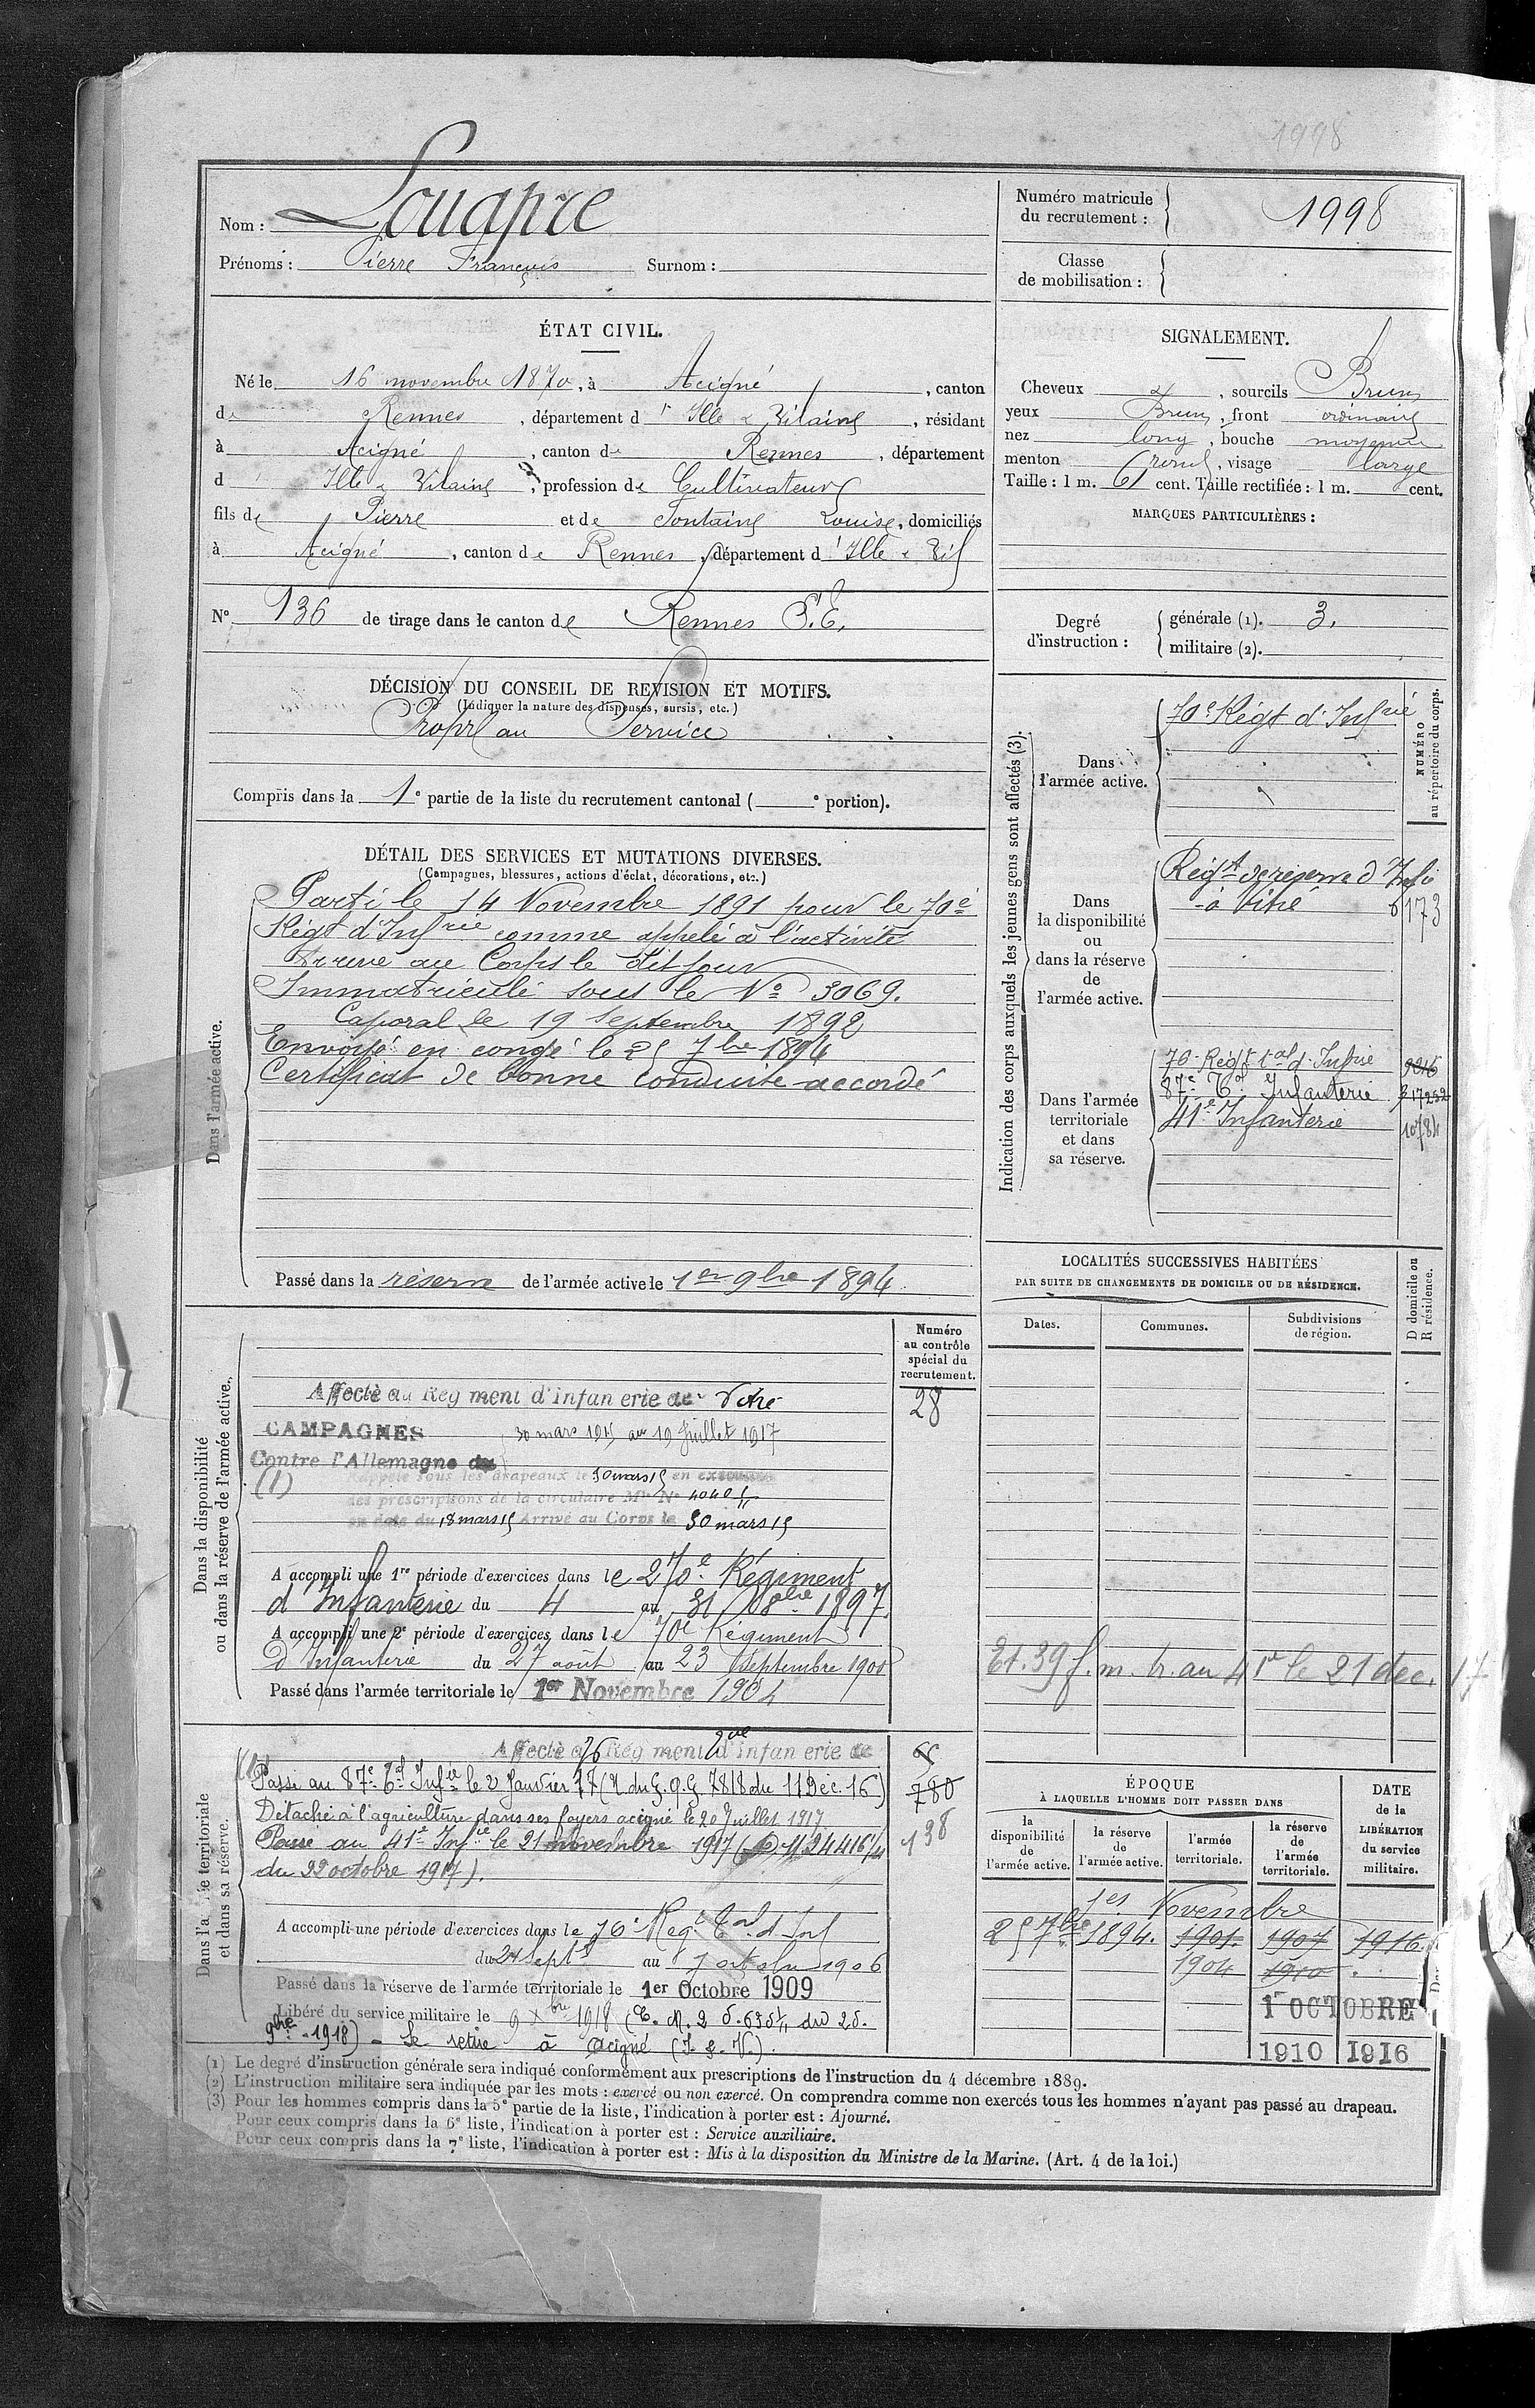 1998
Nom : Louapre
Prénoms : Pierre François Surnom :
Numéro matricule du recrutement : 1998
Classe de mobilisation :
ÉTAT CIVIL.
Né le 16 novembre 1870, à Acigné, canton
de Rennes, département d'Ille & Vilaine, résidant
à Acigné, canton de Rennes, département
d'Ille & Vilaine, profession de Cultivateur
fils de Pierre et de Fontaine Louise, domiciliés
à Acigné, canton de Rennes, département d'Ille & Vil
N° 136 de tirage dans le canton de Rennes S.E.
SIGNALEMENT.
Cheveux &, sourcils Bruns
yeux Bruns, front ordinaire
nez long, bouche moyenne
menton rond, visage large
Taille : 1 m. 61 cent. Taille rectifiée : 1 m. cent.
MARQUES PARTICULIÈRES :
Degré d'instruction :
générale (1). 3.
militaire (2).
DÉCISION DU CONSEIL DE REVISION ET MOTIFS.
(Indiquer la nature des dispenses, sursis, etc.)
Propre au Service
Compris dans la 1e partie de la liste du recrutement cantonal ( e portion).
DÉTAIL DES SERVICES ET MUTATIONS DIVERSES.
(Campagnes, blessures, actions d'éclat, décorations, etc.)
Dans l'armée active.
Parti le 14 Novembre 1891 pour le 70e
Régt d'Infrie comme appelé à l'activité
Arrivé au Corps le dit jour
Immatriculé sous le No 3069.
Caporal le 19 Septembre 1892
Envoyé en congé le 25 7bre 1894
Certificat de bonne conduite accordé
Passé dans la réserve de l'armée active le 1er 9bre 1894
Indication des corps auxquels les jeunes gens sont affectés (3).
NUMÉRO au répertoire du corps.
Dans l'armée active.
70e Régt d'Infrie
Dans la disponibilité ou dans la réserve de l'armée active.
Régt de réserve d'Infie
à Vitré 173
Dans l'armée territoriale et dans sa réserve.
70e Régt tal d'Infrie
87e Tal Infanterie
41e Infanterie 10784
LOCALITÉS SUCCESSIVES HABITÉES
PAR SUITE DE CHANGEMENTS DE DOMICILE OU DE RÉSIDENCE.
Dates. Communes. Subdivisions de région. D domicile ou R résidence.
Et. 39 f. m. h. au 41e le 21 dec. 17
Dans la disponibilité ou dans la réserve de l'armée active.
Numéro au contrôle spécial du recrutement.
Affecté au Régiment d'Infanterie de Vitré 28
CAMPAGNES 30 mars 1915 au 19 juillet 1917
Contre l'Allemagne du
(1) Rappelé sous les drapeaux le 30 mars 15 en exécution
des prescriptions de la circulaire Mlle No
en date du 18 mars 15 Arrivé au Corps le 30 mars 15
A accompli une 1re période d'exercices dans le 270e Régiment
d'Infanterie du 4 au 31 8bre 1897
A accompli une 2e période d'exercices dans le 70e Régiment
d'Infanterie du 27 août au 23 Septembre 1900
Passé dans l'armée territoriale le 1er Novembre 1904
Dans l'armée territoriale et dans sa réserve.
Affecté au 76 Régiment d'Infanterie de
Passé au 87e Tal Infie le 2 Janvier 17 (N. du G.Q.G 7818 du 11 Déc. 16) 780
Détaché à l'agriculture dans ses foyers acigné le 20 Juillet 1917
Passé au 41e Infie le 21 novembre 1917 138
du 22 octobre 1917).
A accompli une période d'exercices dans le 70e Regt Tal d'Inf
du 24 Septe au 7 octobre 1906
Passé dans la réserve de l'armée territoriale le 1er Octobre 1909
Libéré du service militaire le 9 Xbre 1918 (C. M. 2 du 25.
9bre 1918) - Se retire à Acigné (I. & V.).
ÉPOQUE
À LAQUELLE L'HOMME DOIT PASSER DANS
DATE de la LIBÉRATION du service militaire.
la disponibilité de l'armée active. la réserve de l'armée active. l'armée territoriale. la réserve de l'armée territoriale.
1er Novembre
25 7bre 1894. 1901. 1907 1916.
1904 1910
1er OCTOBRE
1910 1916
(1) Le degré d'instruction générale sera indiqué conformément aux prescriptions de l'instruction du 4 décembre 1889.
(2) L'instruction militaire sera indiquée par les mots : exercé ou non exercé. On comprendra comme non exercés tous les hommes n'ayant pas passé au drapeau.
(3) Pour les hommes compris dans la 5e partie de la liste, l'indication à porter est : Ajourné.
Pour ceux compris dans la 6e liste, l'indication à porter est : Service auxiliaire.
Pour ceux compris dans la 7e liste, l'indication à porter est : Mis à la disposition du Ministre de la Marine. (Art. 4 de la loi.)